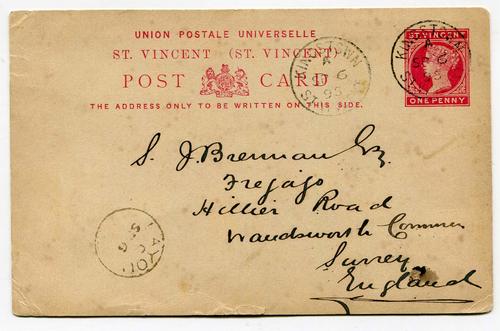 UNION POSTALE UNIVERSELLE
ST. VINCENT (ST. VINCENT)
POST CARD
THE ADDRESS ONLY TO BE WRITTEN ON THIS SIDE.
ST. VINCENT
ONE PENNY
KINGSTOWN
A
17
95
KINGSTOWN
A
S. J. Brennan Esq.
Hillier Road
Wandsworth Common
Surrey
England